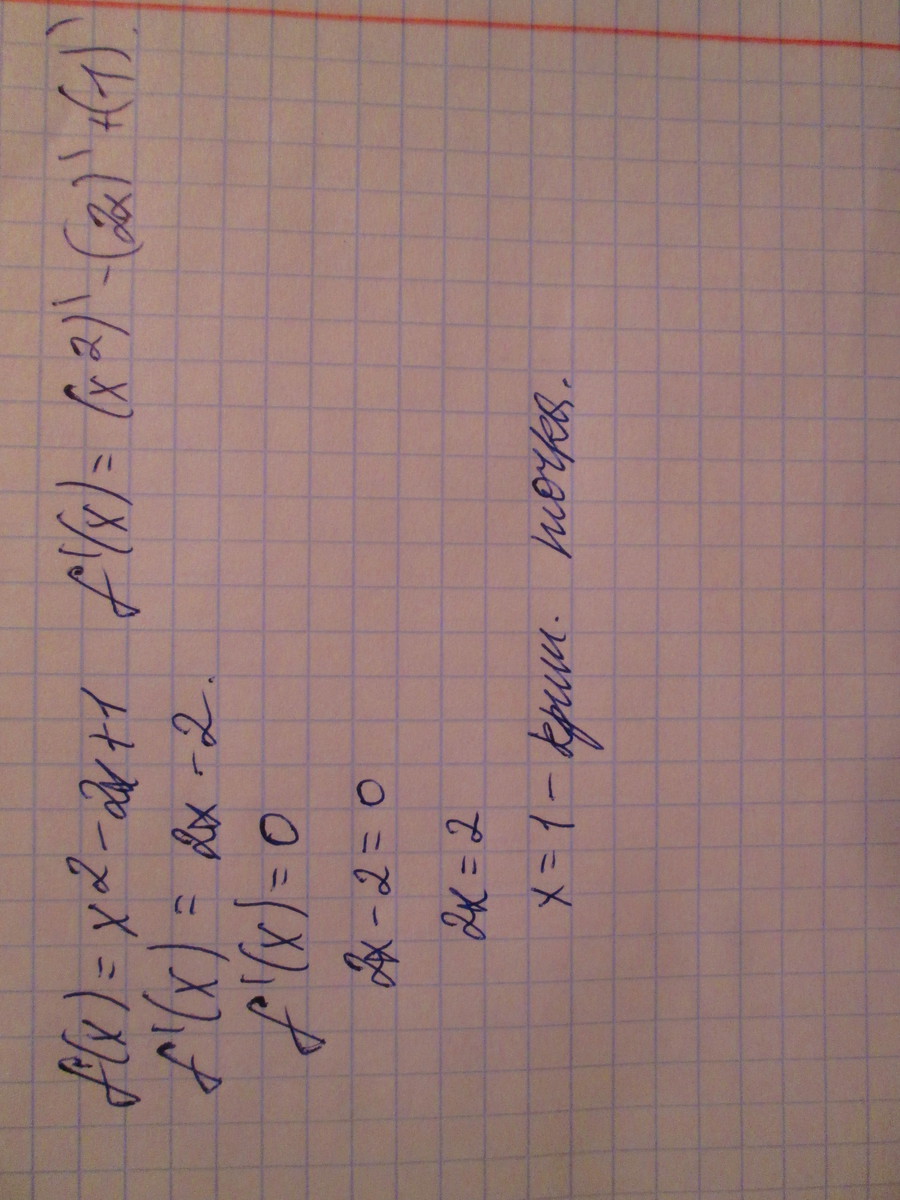 f(x) = x² - 2x + 1 f'(x) = (x²)' - (2x)' + (1)'.
f'(x) = 2x - 2.
f'(x) = 0
2x - 2 = 0
2x = 2
x = 1 - крит. точка.